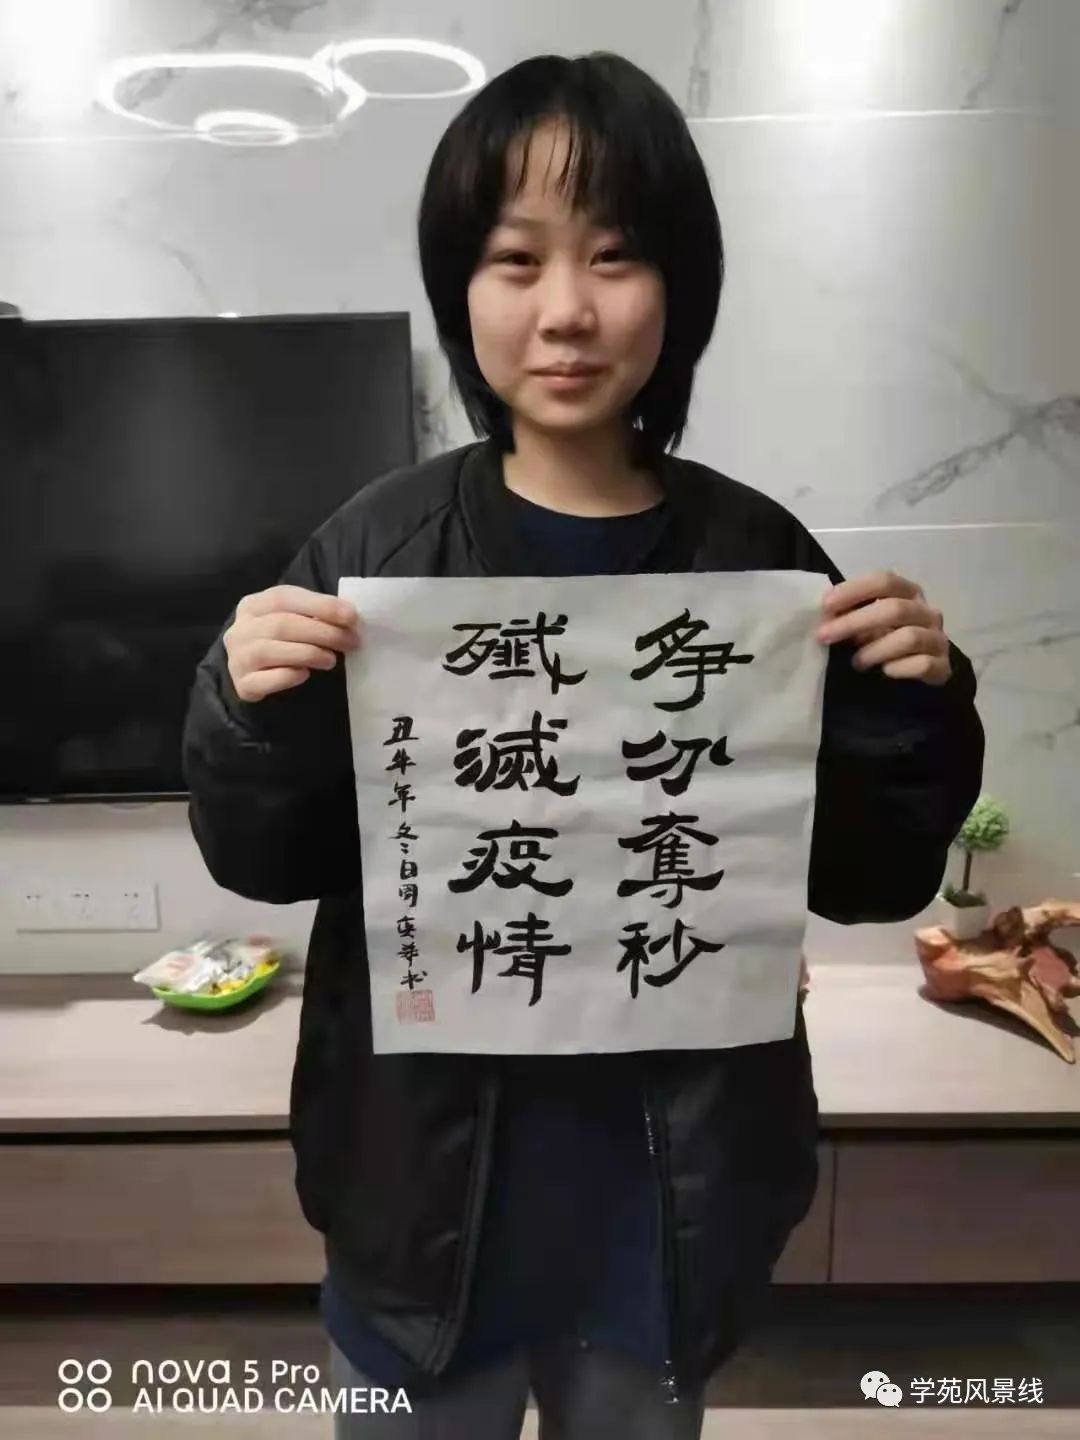 爭分奪秒
殲滅疫情
丑牛年冬日周奕希书
nova 5 Pro
AI QUAD CAMERA
学苑风景线